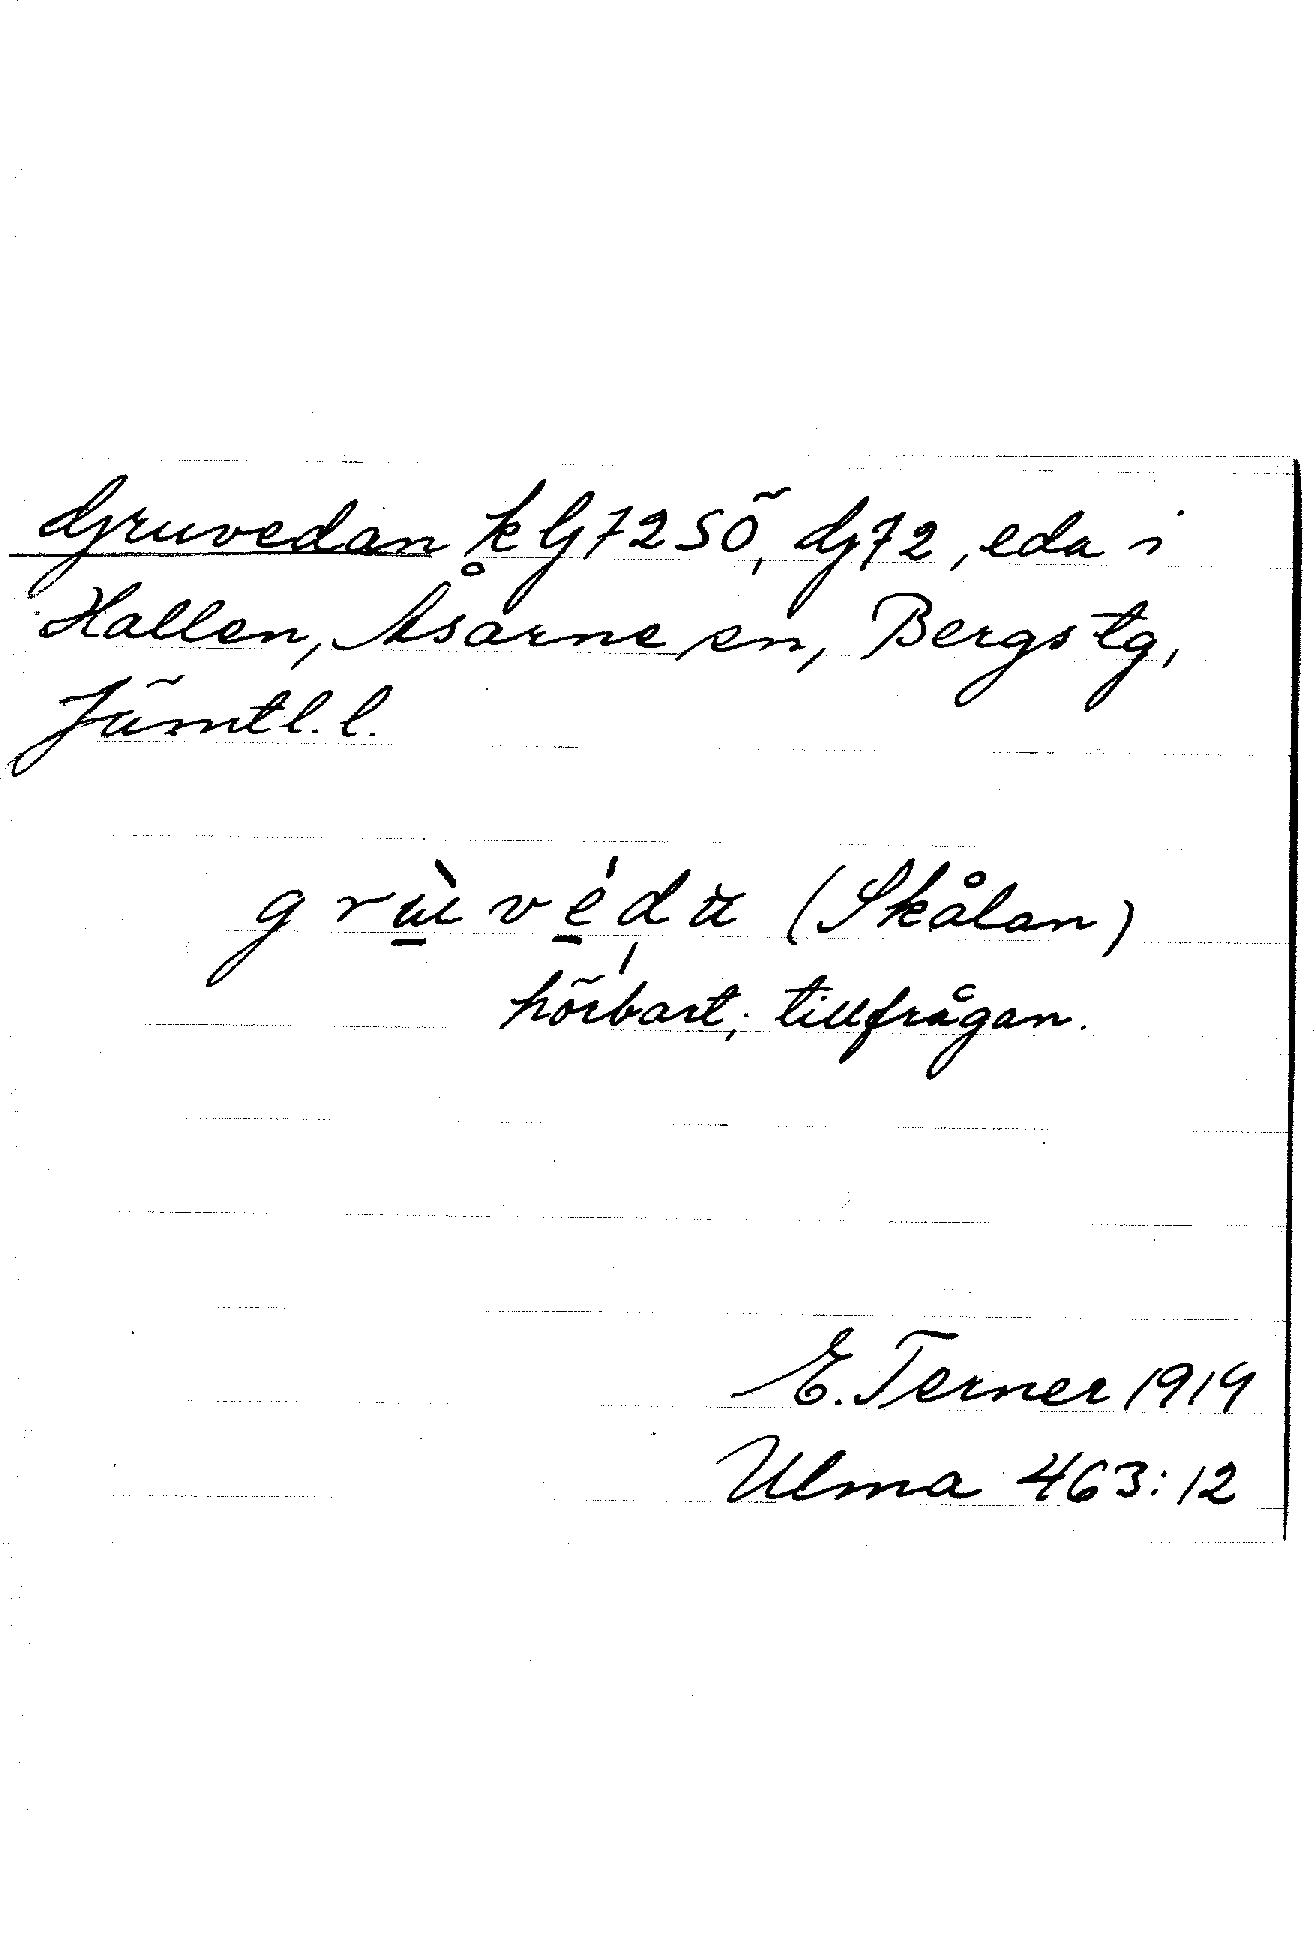 Gruvedan k G72SÖ, G72, eda i
Hallen, Åsarne sn, Bergs tg,
Jämtl. l.
grùvéda (Skålan)
hörbart; tillfrågan.
E. Terner 1919
Ulma 463:12